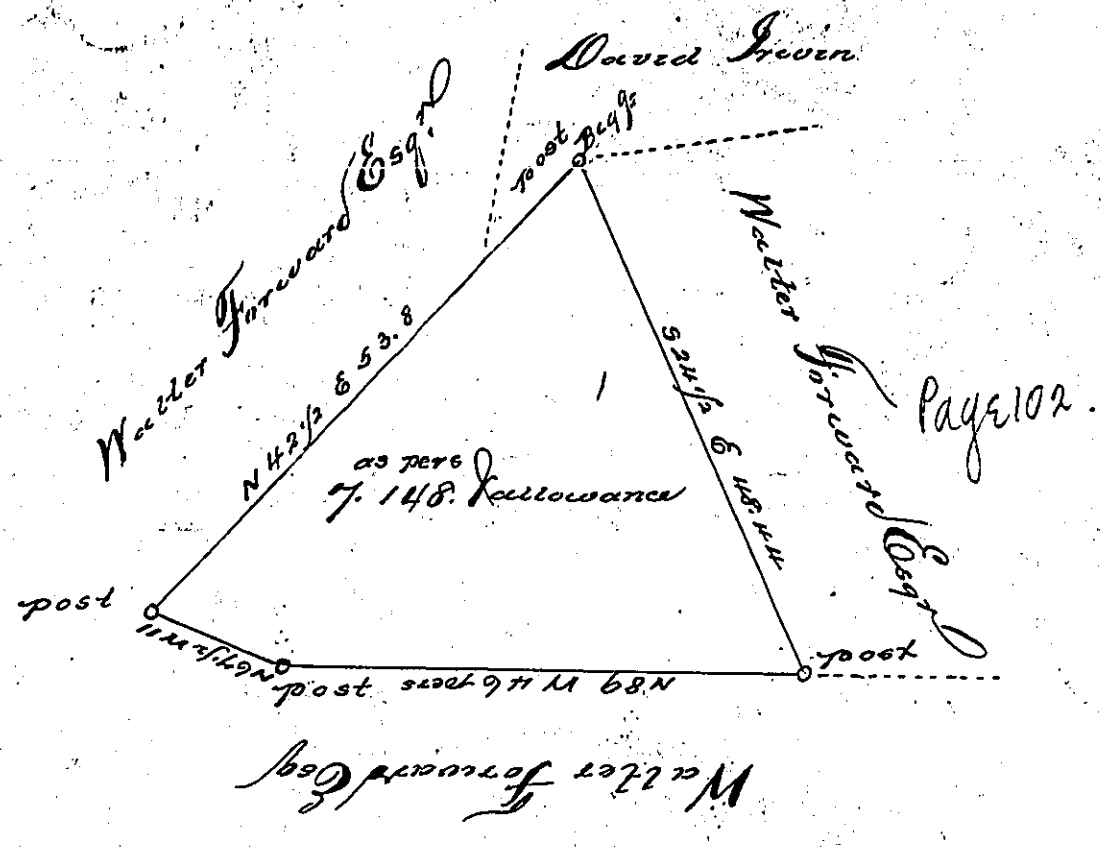 David Irevin
Walter Forward Esqr
Post Begg
Walter Forward Esqr
Page 102.
N 42 1/2 E 53.8
S 24 1/2 E 48.44
as pers
7. 148. & allowance
post
N 67 1/2 W 11
post
N 89 W 46 pers
post
Walter Forward Esq